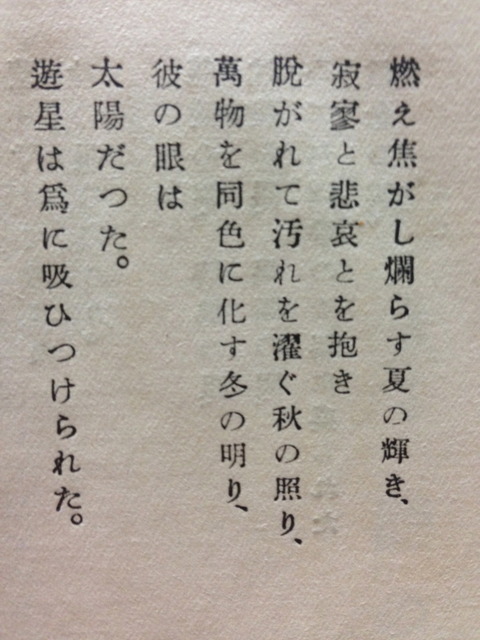 燃え焦がし爛らす夏の輝き、
寂寥と悲哀とを抱き
脱がれて汚れを濯ぐ秋の照り、
萬物を同色に化す冬の明り、
彼の眼は
太陽だつた。
遊星は爲に吸ひつけられた。